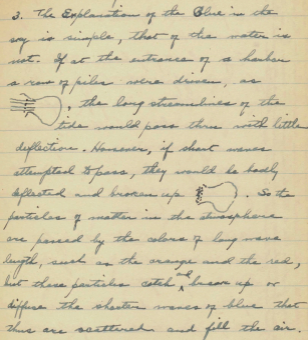 3. The Explanation of the Blue in the
sky is simple, that of the water is
not. If at the entrance of a harbor
a row of piles were driven, as
, the long streamlines of the
tide would pass thru with little
deflection. However, if short waves
attempted to pass, they would be badly
deflected and broken up . So the
particles of matter in the atmosphere
are passed by the colors of long wave
length, such as the orange and the red,
but these particles catch and break up or
diffuse the shorter waves of blue that
thus are scattered and fill the air.